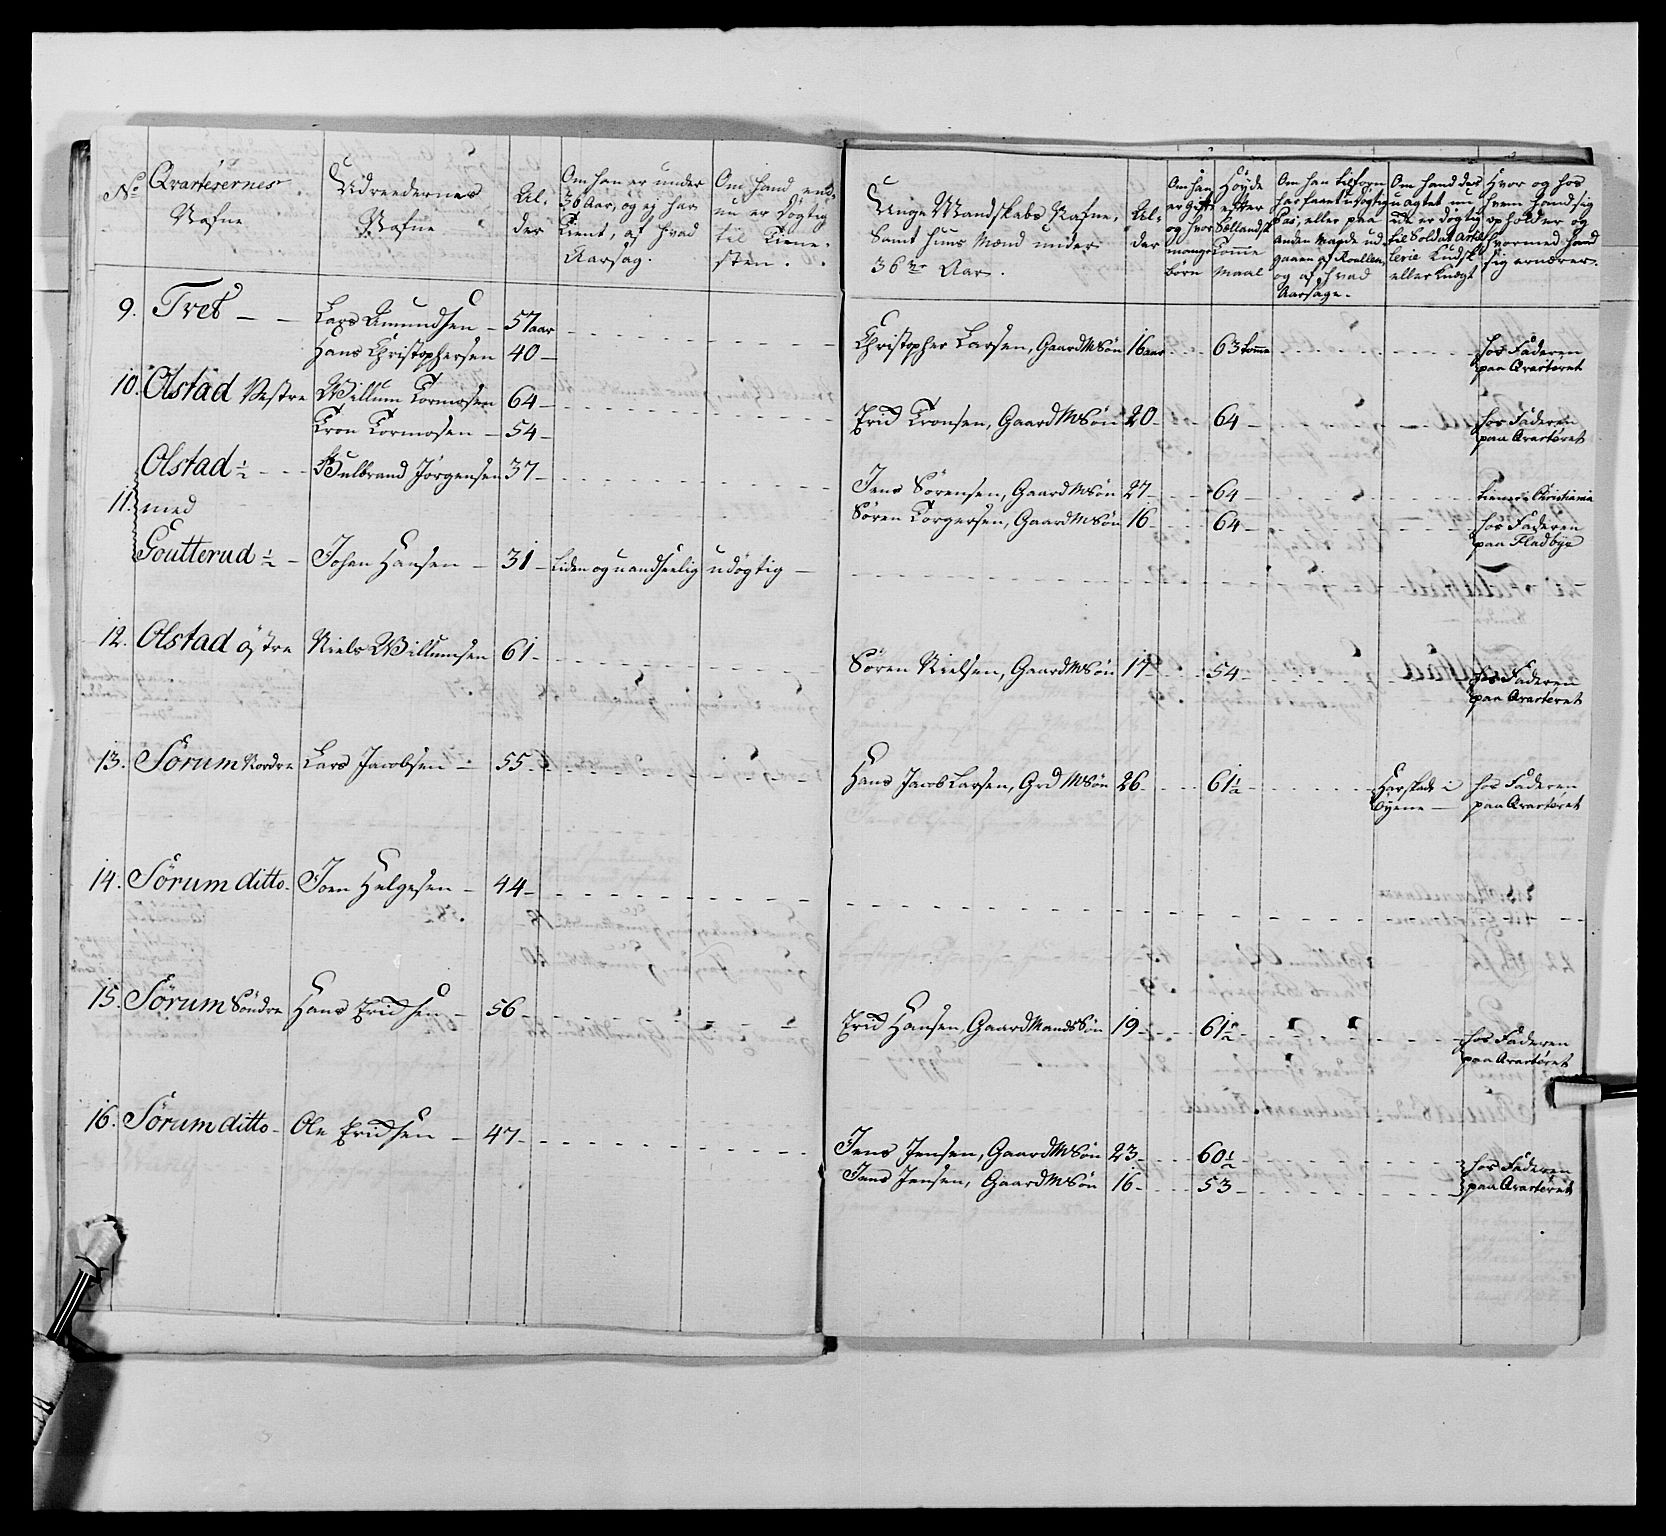 No
Qvarterernes
Nafne
Udreedernes
Nafne
Al-
der
Om han er under
36 Aar, og ej har
tient, af hvad
Aarsag.
Om hand end-
nu er døgtig
til Tiene-
sten.
Unge Mandskabs Nafne,
Samt huus Mænd under
36 Aar.
Al-
der
Om han
er gift
og hvor
mange
børn
Høyde
efter
Sællandsk
Tomme
Maal
Om han tilforn
har faaet udøgtig
Pas, eller paa
anden Maade ud-
gaaen af Roullen,
og af hvad
Aarsage.
Om hand des
uagtet nu
er døgtig
til Soldat Artil
lerie Kudsk
eller Knegt
Hvor og hos
hvem hand sig
opholder og
hvormed hand
sig ernærer.
9. Tvet — — Lars Amundsen — 57 aar
Hans Christophersen 40 —
Christopher Larsen, Gaard M Søn 16 aar 63 tomme hos Faderen
paa Qvarteret
10. Olstad Vestre Willum Tormosen 64 —
Tron Tormosen — 54 —
Erich Tronsen, Gaard M Søn 20 64 hos Faderen
paa Qvarteret
Olstad ½ Gulbrand Jørgensen 37 —
11. med
Jens Sørensen, Gaard M Søn 27 64 tiener i Christiania
Søren Torgersen, Gaard M Søn 16 64 hos Faderen
paa Fladbye
Goutterud ½ — Johan Hansen — 31 — liden og uandseelig udøgtig —
12. Olstad østre Niels Willumsen 61 —
Søren Nielsen, Gaard M Søn 17 54 hos Faderen
paa Qvarteret
13. Sørum Nordre Lars Jacobsen — 55
Hans Jacob Larsen, Grd M Søn 26 61½ i hos Faderen
Øyene — paa Qvarteret
14. Sørum ditto. Joen Helgesen — 44 —
15. Sørum Søndre Hans Erichsen — 56
Erich Hansen, Gaard Mands Søn 19 61½ hos Faderen
paa Qvarteret
16. Sørum ditto — Ole Erichsen — 47 —
Jens Jensen, Gaard M Søn 23 60½ hos Faderen
Jens Jensen, Gaard M Søn 16 53 paa Qvarteret